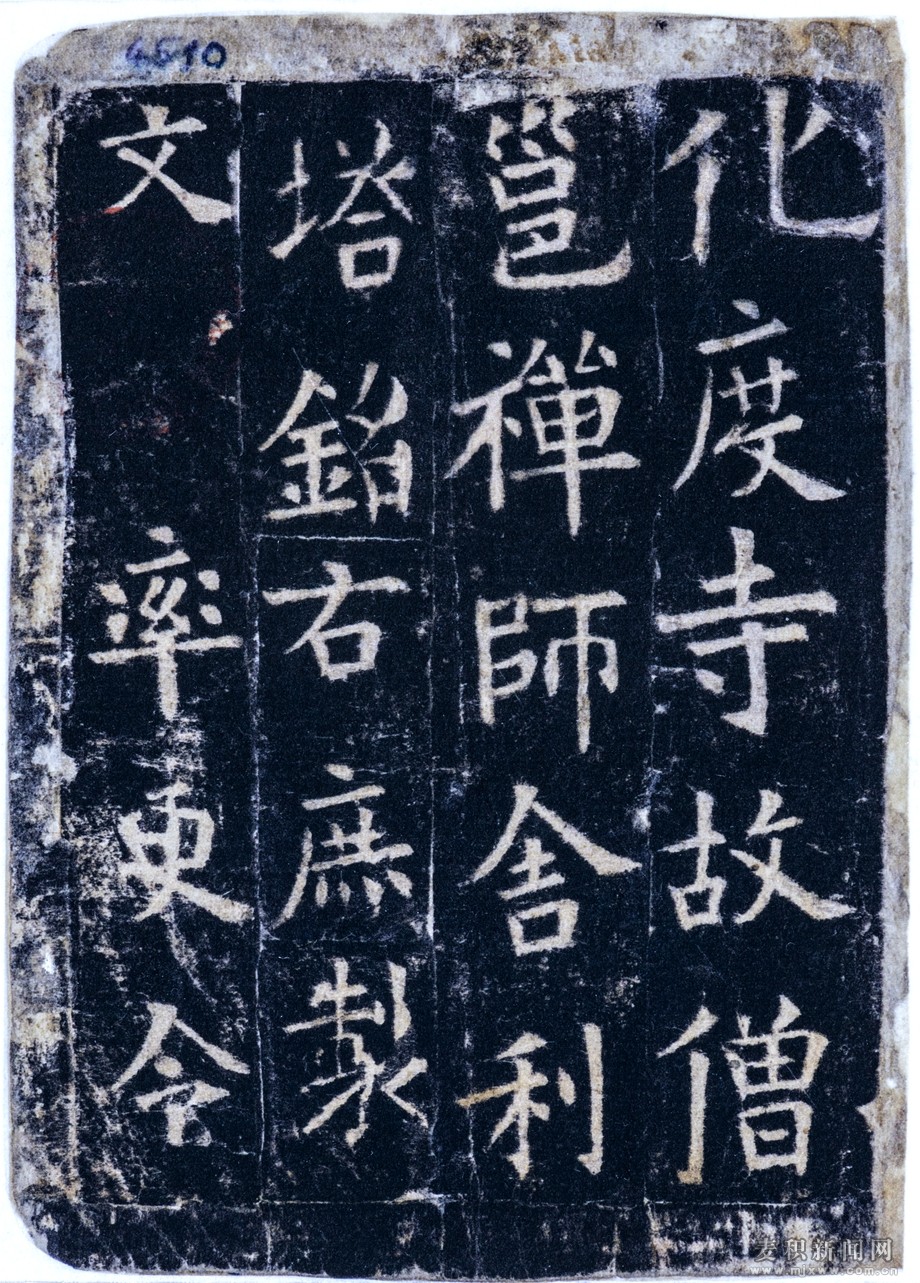 化度寺故僧
邕禪師舍利
塔銘右庶製
文 率更令
4510
麦积新闻网
www.mixww.com.cn